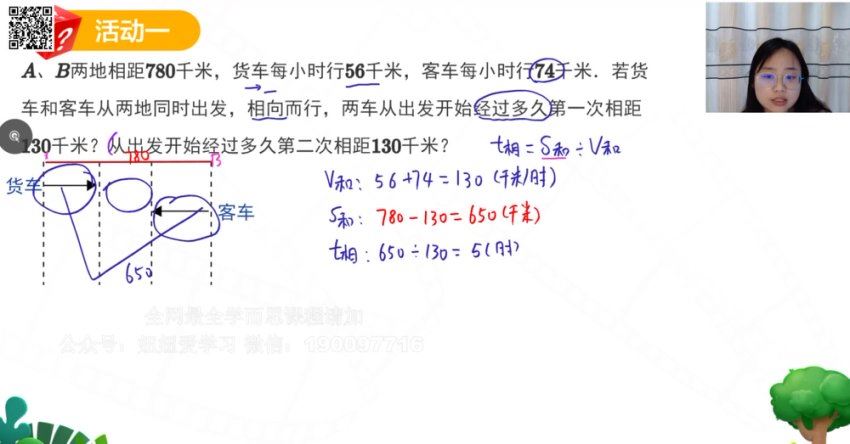 活动一
A、B两地相距780千米，货车每小时行56千米，客车每小时行74千米．若货
车和客车从两地同时出发，相向而行，两车从出发开始经过多久第一次相距
130千米？从出发开始经过多久第二次相距130千米？
t相=S和÷V和
780
B
货车
客车
650
V和：56+74=130（千米/时）
S和：780-130=650（千米）
t相：650÷130=5（时）
全网最全学而思课程请加
公众号：妞妞爱学习 微信：190097716